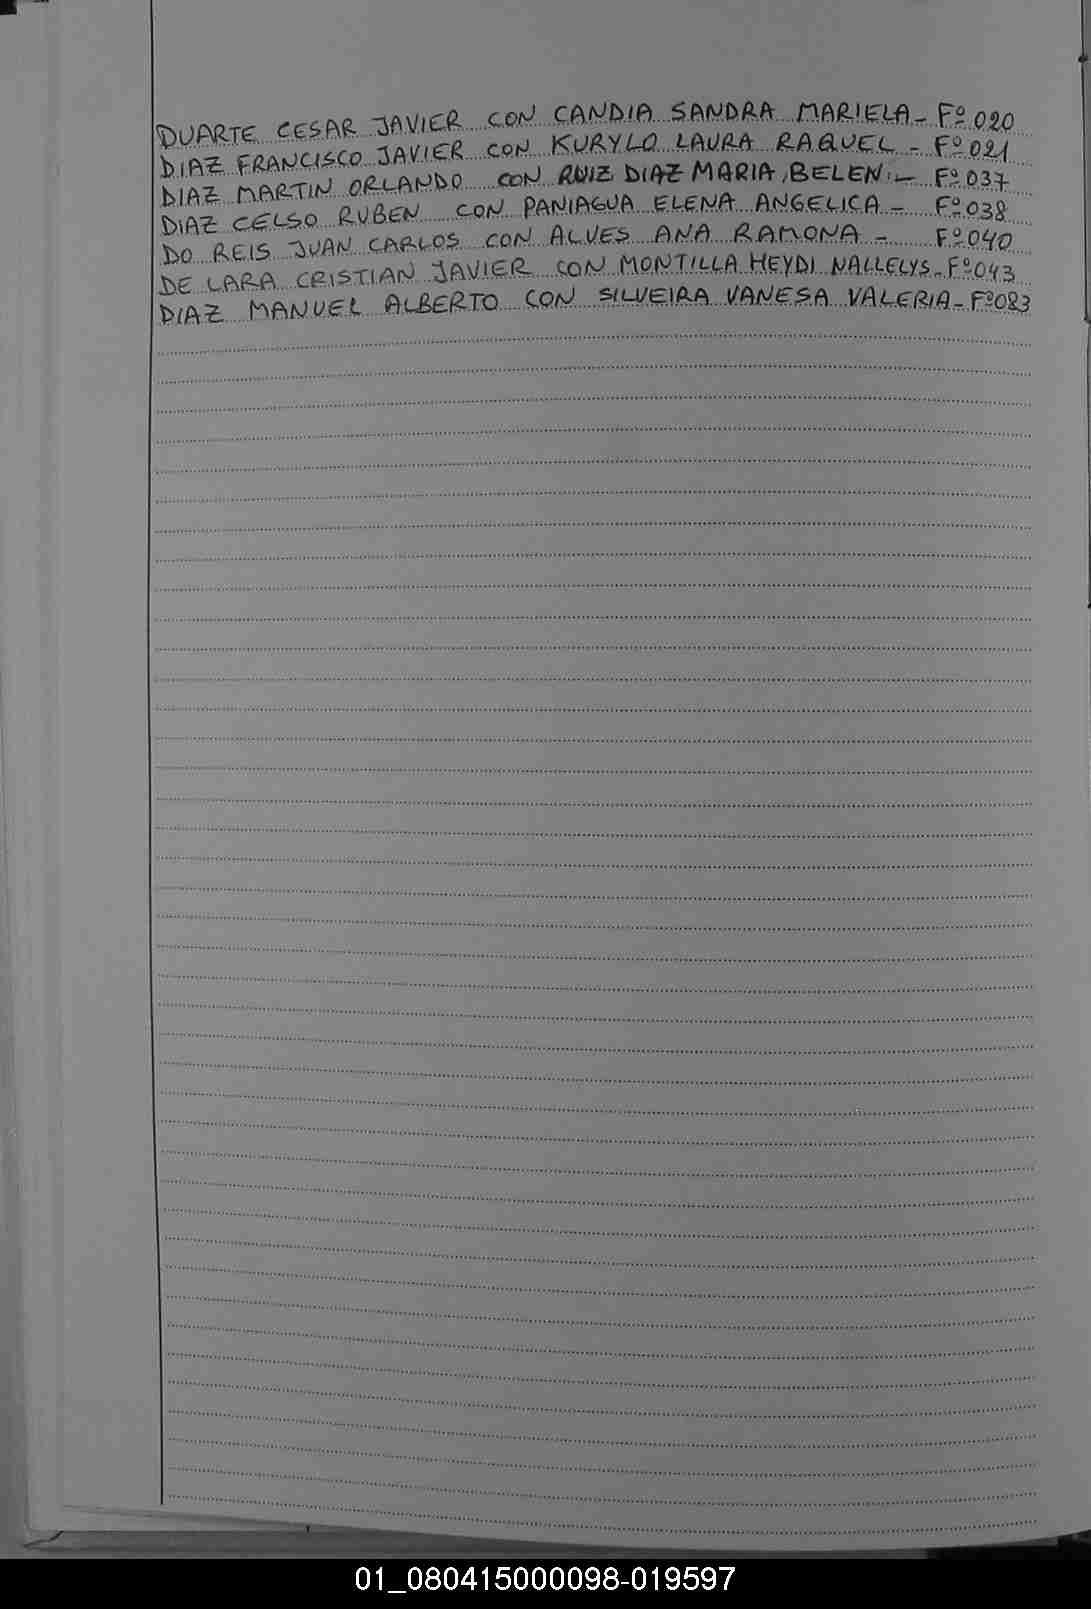 DUARTE CESAR JAVIER CON CANDIA SANDRA MARIELA - Fº 020
DIAZ FRANCISCO JAVIER CON KURYLO LAURA RAQUEL - Fº 021
DIAZ MARTIN ORLANDO CON RUIZ DIAZ MARIA BELEN - Fº 037
DIAZ CELSO RUBEN CON PANIAGUA ELENA ANGELICA - Fº 038
DO REIS JUAN CARLOS CON ALVES ANA RAMONA - Fº 040
DE LARA CRISTIAN JAVIER CON MONTILLA HEYDI NALLELYS - Fº 043
DIAZ MANUEL ALBERTO CON SILVEIRA VANESA VALERIA - Fº 083
01_080415000098-019597